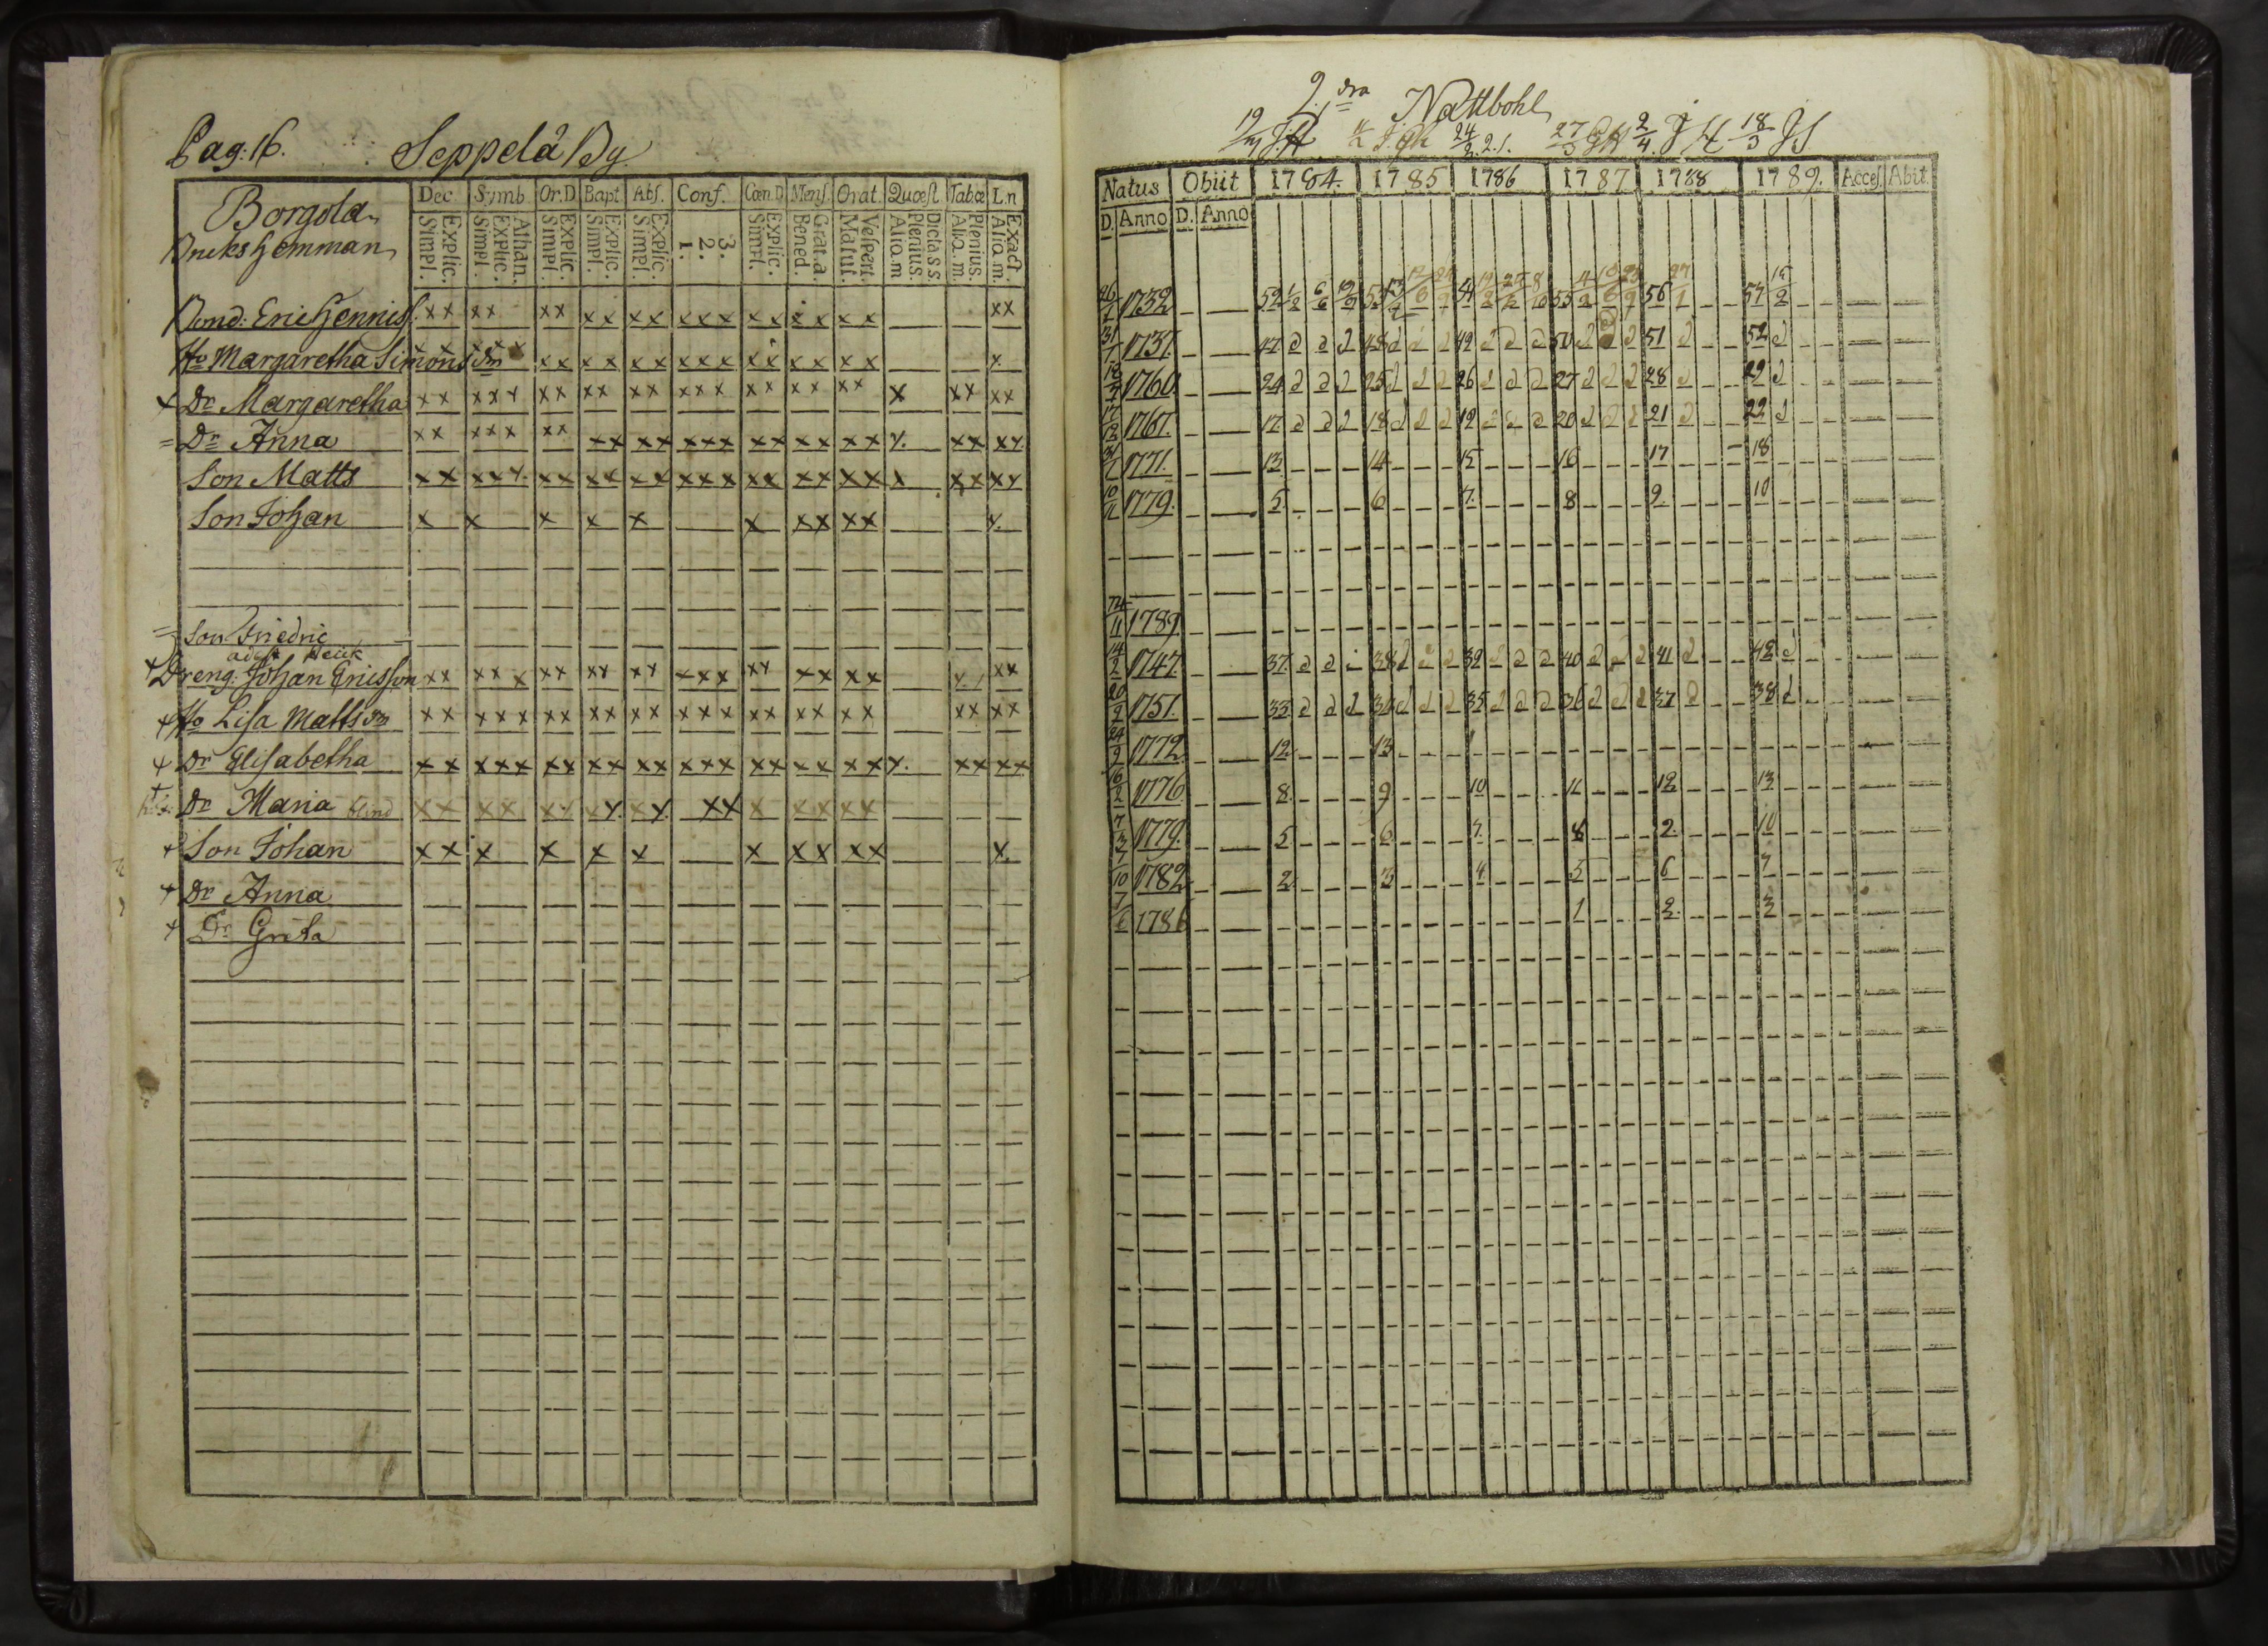 Pag: 16. Seppelä By.
Borgola
Brukshemman
Dec. Symb. Or.D. Bapt. Abs. Conf. Cœn.D. Mens. Orat. Quæst. Tabœ L.n
Explic. Simpl. Athan. Explic. Simpl. Explic. Simpl. Explic. Simpl. Explic. Simpl. 3. 2. 1. Explic. Simpl. Grat.a Bened. Vespert. Matut. Dicta s s. Plenius. Aliq.m Plenius. Aliq.m. Exact Aliq.m.
Bond: Eric Henniss. xx xx xx xx xx xxx xx xx xx xx
Ho Margaretha Simonsdr xx xx xx xx xx xxx xx xx xx x
+ Dr Margaretha xx xxx xx xx xx xxx xx xx xx x xx xx
= Dr Anna xx xxx xx xx xx xxx xx xx xx x. xx xx
Son Matts xx xxx xx xx xx xxx xx xx xx x xx xx
Son Johan x x x x x x xx xx x.
= Son Friedric
+ Dreng. Johan Ericsson xx xx x xx xx xx xxx xx xx xx xx
+ Ho Lisa Mattsdr xx xxx xx xx xx xxx xx xx xx xx xx
+ Dr Elisabetha xx xxx xx xx xx xxx xx xx xx x. xx xx
+ Dr Maria blind xx xx xx xx xx xx x xx xx
+ Son Johan xx x x x x x xx xx x
+ Dr Anna
+ Dr Greta
2:dra Nattbohl
24/2 27/3 2/4 18/3
Natus Obiit 1784. 1785 1786 1787 1788 1789. Acces. Abit.
D. Anno D. Anno
26/1 1732 52 53 54 55 56 57
31/1 1737. 47 48 49 50 51 52
18/7 1760 24 25 26 27 28 29
17/12 1767. 17 18 19 20 21 22
31/1 1771. 13 14 15 16 17 18
10/11 1779. 5. 6 7. 8 9. 10
1789
14/2 1747. 37 38 39 40 41 42
20/9 1751. 33 34 35 36 37 38
24/9 1772 12 13
16/2 1776 8. 9 10 11 12 13
7/3 1779. 5 6 7. 8 9. 10
7/10 1782 2. 3 4 5 6 7
1786 1 2. 3